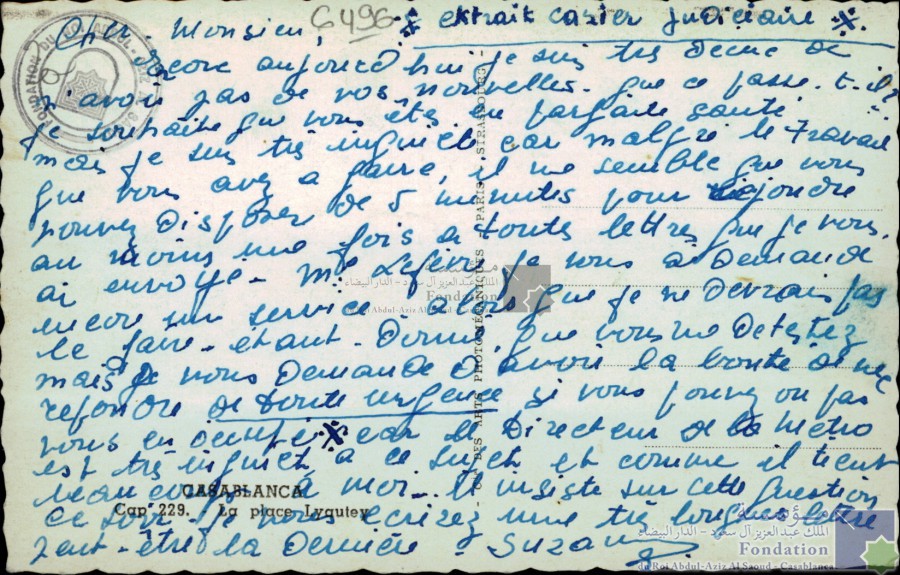 6496
※ extrait casier judiciaire ※
Cher Monsieur,
Encore aujourd'hui je suis très déçue de
n'avoir pas de vos nouvelles. que ce passe-t-il?
Je souhaite que vous êtes en parfaite santé
mais je suis très inquiète car malgré le travail
que vous avez a faire, il me semble que vous
pouvez disposer de 5 minutes pour répondre
au moins une fois a toutes lettres que je vous
ai envoyé - Mr Lefèvre, je vous demande
encore un service - alors que je ne devrais pas
le faire - étant - donné que vous me détestez
mais je vous demande d'avoir la bonté de me
répondre de toute urgence si vous pouvez ou pas
vous en occuper ※ car le Directeur de la Métro
est très inquiet à ce sujet et comme il tient
beaucoup à moi - Il insiste sur cette question
ce soir je vous écrirez une très longue lettre
peut-être la dernière Suzanne
CASABLANCA
Cap 229. La place Lyautey
DES ARTS PHOTOMÉCANIQUES - PARIS - STRASBOURG
مؤسسة
الملك عبد العزيز آل سعود - الدار البيضاء
Fondation
du Roi Abdul-Aziz Al Saoud - Casablanca
مؤسسة
الملك عبد العزيز آل سعود - الدار البيضاء
Fondation
du Roi Abdul-Aziz Al Saoud - Casablanca